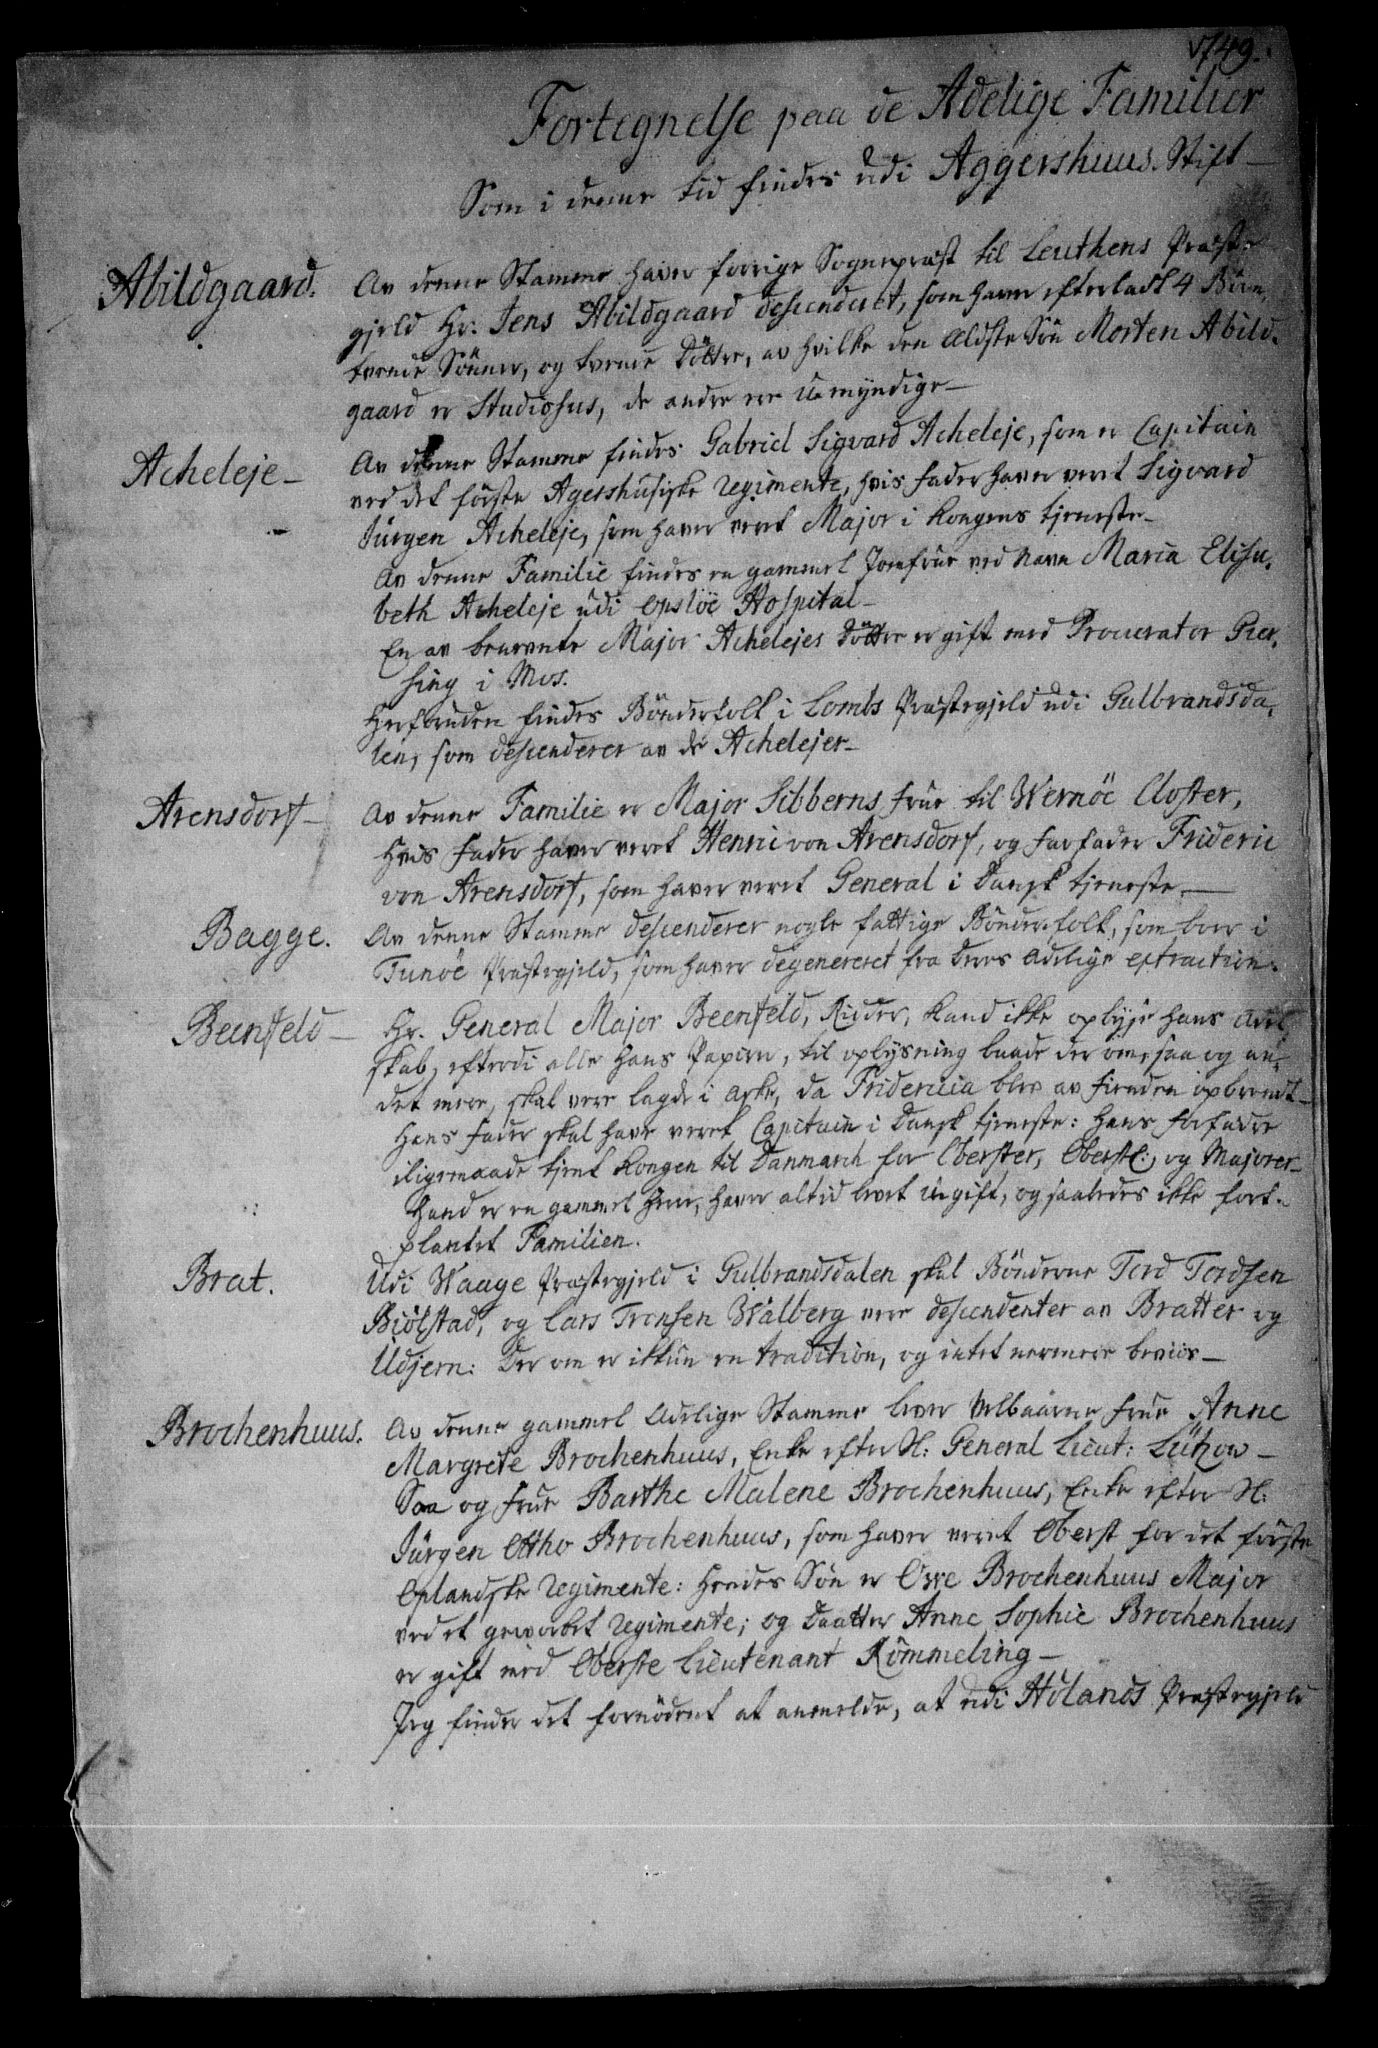 1749.
Fortegnelse paa de Adelige Familier
Som i denne tid findes udi Aggershuus Stift
Abildgaard. Av denne Stamme haver forrige Sognepræst til Leuthens Præste-
gjeld Hr: Jens Abildgaard descenderet, som haver efterladt 4 Börn,
tvende Sönner, og tvende Döttre, av hvilke den Ældste Sön Morten Abild-
gaard er Studiosus, de andre ere Umyndige—
Acheleje— Av denne Stamme findes Gabriel Sigvard Acheleje, som er Capitain
ved det förste Agershusiske Regimente, hvis fader haver veret Sigvard
Jürgen Acheleje, som haver veret Major i Kongens tjeneste—
Av denne Familie findes en gammel Jomfrue ved Navn Maria Elisa-
beth Acheleje udi Opsloe Hospital—
En av benevnte Major Achelejes Döttre er gift med Procurator Pier-
sing i Mos.
Herforuden findes Bönderfolk i Lombs Præstegjeld udi Gulbrandsda-
len, som descenderer av de Achelejer—
Arensdorf— Av denne Familie er Major Sibberns frue til Wernöe Closter,
Hvis fader haver veret Henric von Arensdorf, og farfader Frideric
von Arensdorf, som haver veret General i Dansk tjeneste.—
Bagge. Av denne Stamme descenderer nogle fattige Bönderfolk, som boer i
Tunöe Præstegjeld, som haver degenereret fra deres Adelige extraction.
Beenfeld— Hr. General Major Beenfeld, Ridder, kand ikke oplyse hans Adel-
skab, efterdi alle hans Papirer, til oplysning baade der om, saa og an-
det mere, skal vere lagde i Aske, da Fridericia blev av fienden opbrendt—
Hans fader skal have veret Capitain i Dansk tjeneste: hans forfædre
iligemaade tient Kongen til Danmarch for Oberster, Oberstl:, og Majorer—
Hand er en gammel Herre, haver altid levet Ugift, og saaledes ikke fort-
plantet Familien.
Brat. Udi Waage Præstegjeld i Gulbrandsdalen skal Bönderne Tord Tordsen
Biölstad, og Lars Tronsen Walberg vere descendenter av Bratter og
Udjern: Der om er ikkun en tradition, og intet nermere beviis—
Brochenhuus. Av denne gammel Adelige Stamme lever Velbaarne frue Anne
Margrete Brochenhuus, Enke efter Sl: General Lieut: Lützow—
Saa og frue Barthe Malene Brochenhuus, Enke efter Sl:
Jürgen Ottho Brochenhuus, som haver veret Oberst for det förste
Oplandske Regimente: Hendes Sön er Owe Brochenhuus Major
ved et gevorbet Regimente; og Daatter Anne Sophie Brochenhuus
er gift med Oberste Lieutenant Römmeling—
Jeg finder det fornödent at anmelde, at udi Hölands Præstegjeld